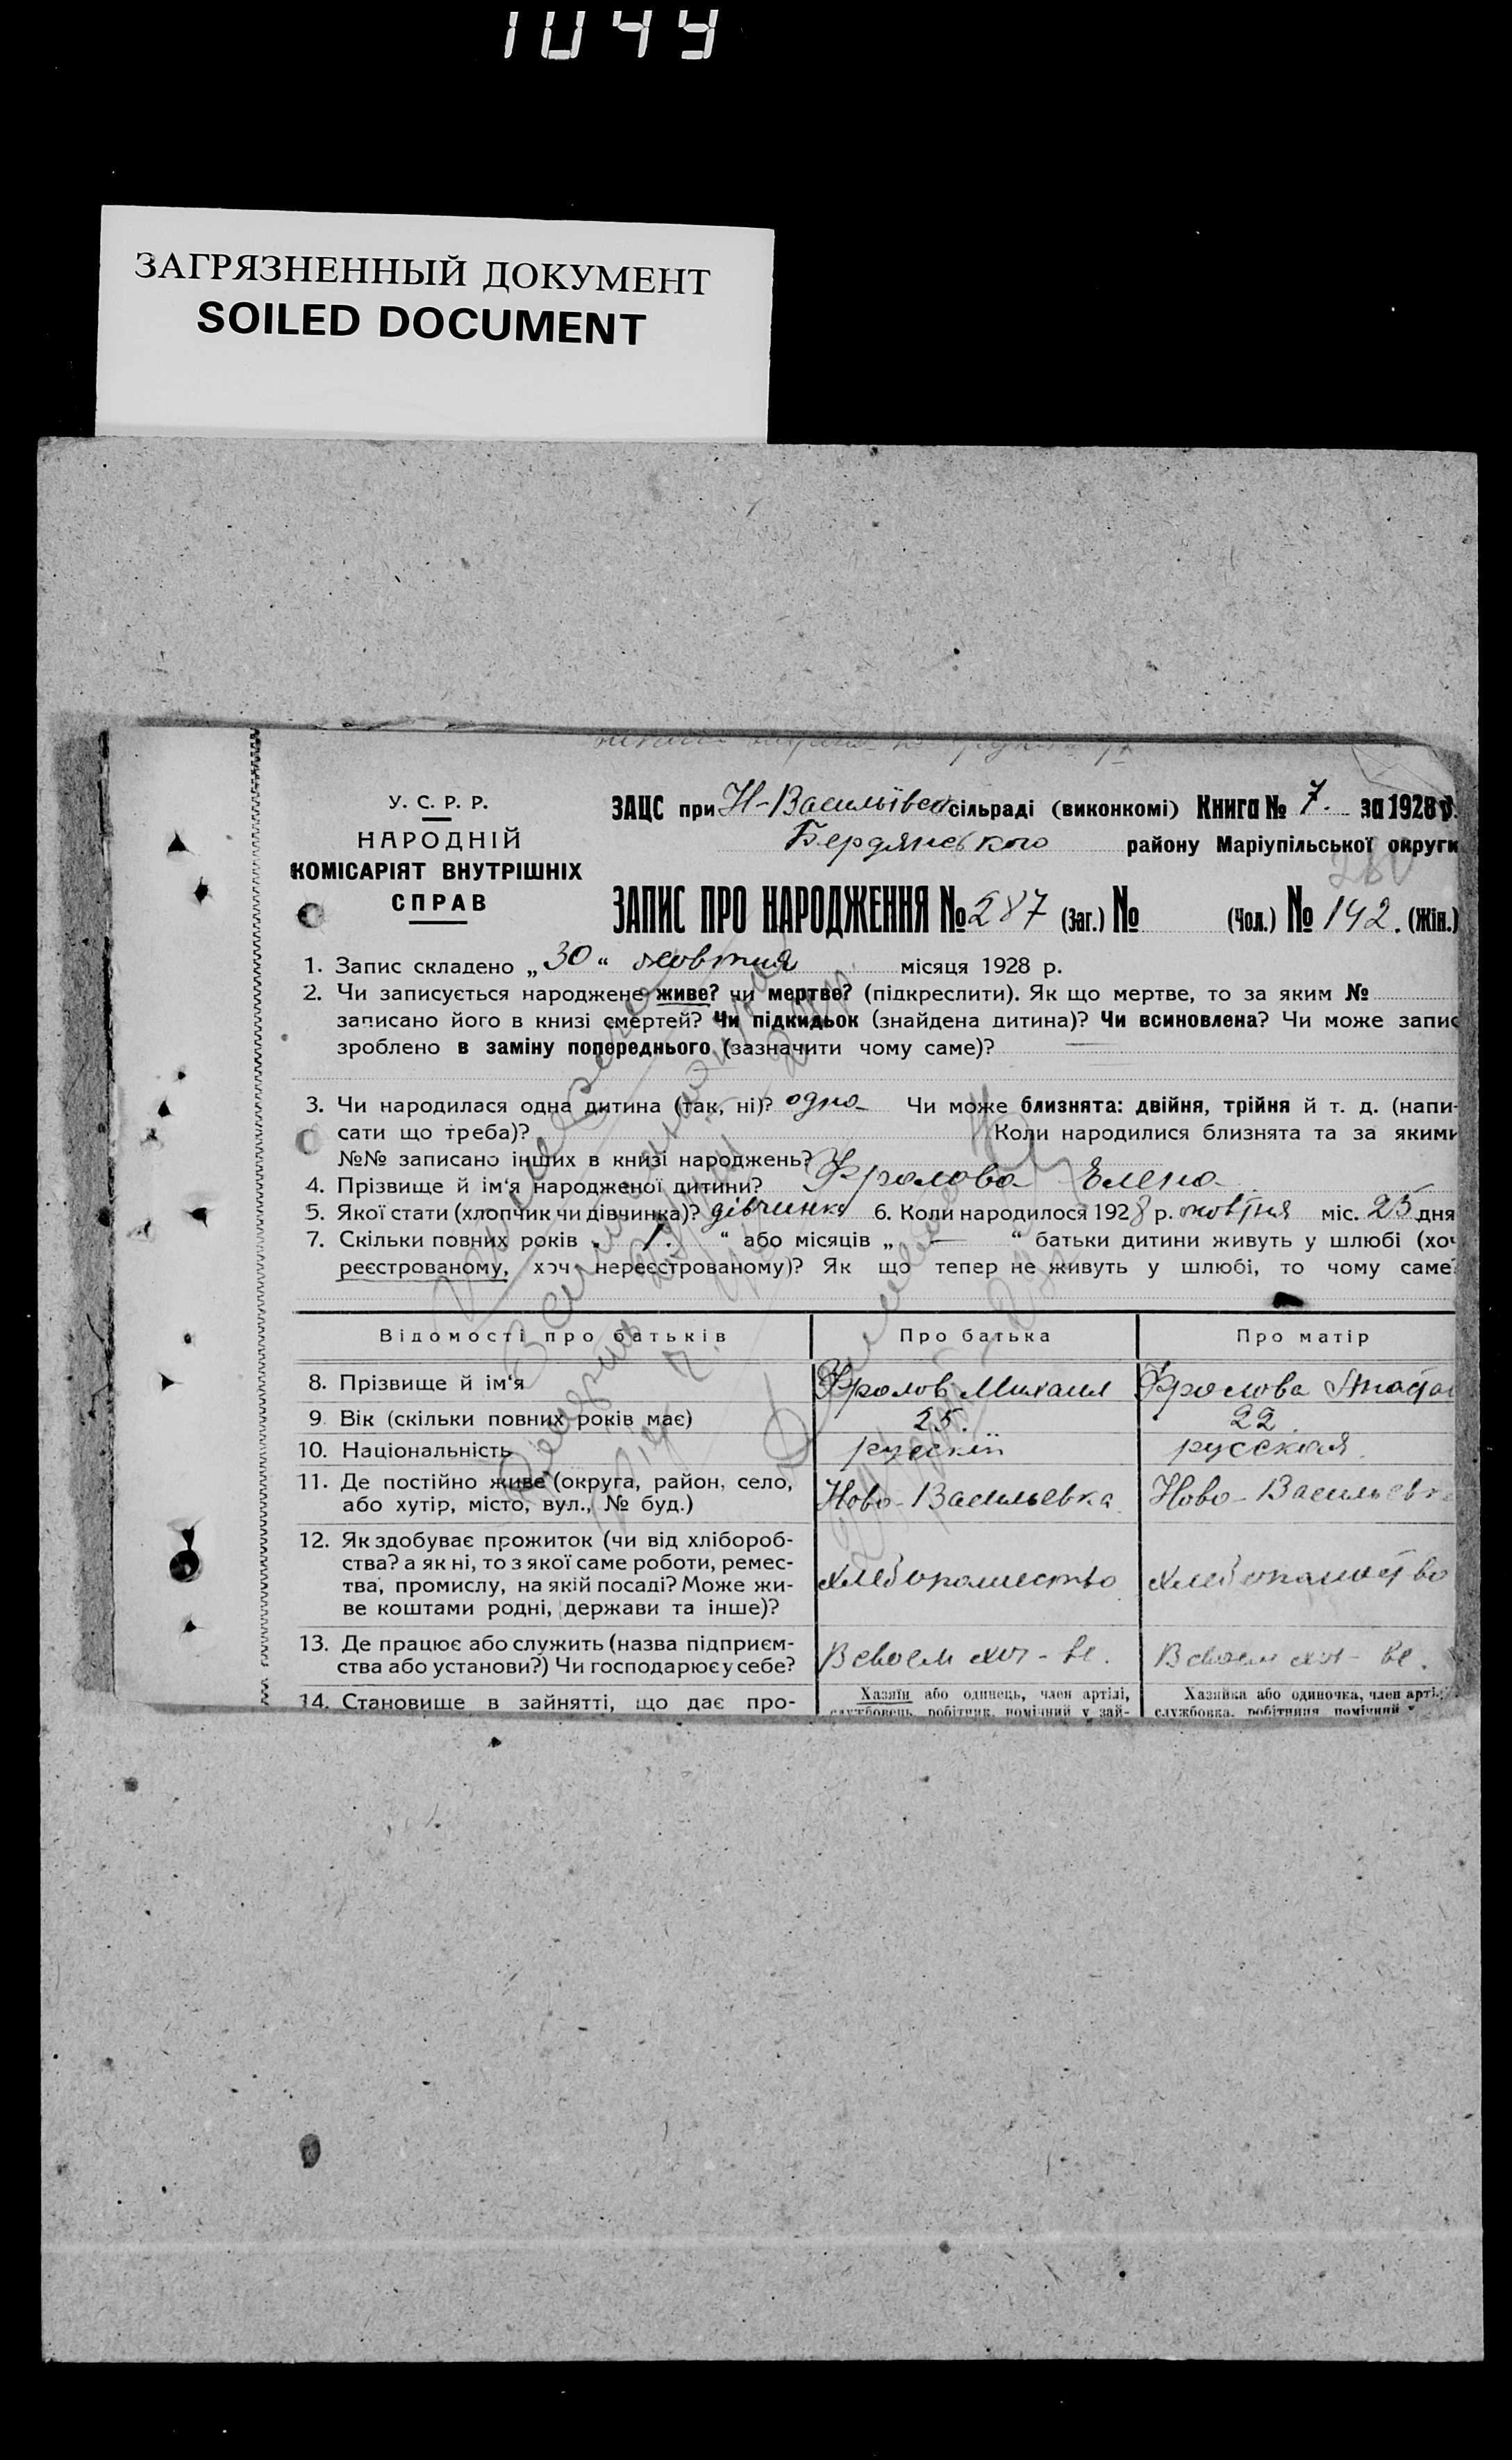 1044
ЗАГРЯЗНЕННЫЙ ДОКУМЕНТ
SOILED DOCUMENT
У. С. Р. Р.
НАРОДНІЙ
КОМІСАРІЯТ ВНУТРІШНІХ
СПРАВ
ЗАЦС при Н-Васильївск сільраді (виконкомі) Книга № 7. за 1928 р.
Бердянського району Маріупільської округи
ЗАПИС ПРО НАРОДЖЕННЯ № 287 (Заг.) № (Чол.) № 142. (Жін.)
1. Запис складено „30“ жовтня місяця 1928 р.
2. Чи записується народжене живе? чи мертве? (підкреслити). Як що мертве, то за яким №
записано його в книзі смертей? Чи підкидьок (знайдена дитина)? Чи всиновлена? Чи може запис
зроблено в заміну попереднього (зазначити чому саме)?
3. Чи народилася одна дитина (так, ні)? одна Чи може близнята: двійня, трійня й т. д. (напи-
сати що треба)? Коли народилися близнята та за якими
№№ записано інших в книзі народжень?
4. Прізвище й ім‘я народженої дитини? Фролова Елена
5. Якої стати (хлопчик чи дівчинка)? дівчинка 6. Коли народилося 1928 р. жовтня міс. 25 дня
7. Скільки повних років „ 1. “ або місяців „ — “ батьки дитини живуть у шлюбі (хоч
реєстрованому, хоч нереєстрованому)? Як що тепер не живуть у шлюбі, то чому саме?
Відомості про батьків Про батька Про матір
8. Прізвище й ім‘я Фролов Михаил Фролова
9. Вік (скільки повних років має) 25. 22.
10. Національність русский русская.
11. Де постійно живе (округа, район, село,
або хутір, місто, вул., № буд.) Ново-Васильевка Ново-Васильевка
12. Як здобуває прожиток (чи від хлібороб-
ства? а як ні, то з якої саме роботи, ремес-
тва, промислу, на якій посаді? Може жи- хлебопашество хлебопашество
ве коштами родні, держави та інше)?
13. Де працює або служить (назва підприєм- В своем хоз-ве. В своем хоз-ве.
ства або установи?) Чи господарює у себе?
14. Становище в зайнятті, що дає про- Хазяїн або одинець, член артілі, Хазяйка або одиночка, член арті
службовець, робітник, помічний у зай- службовка, робітниця помічний